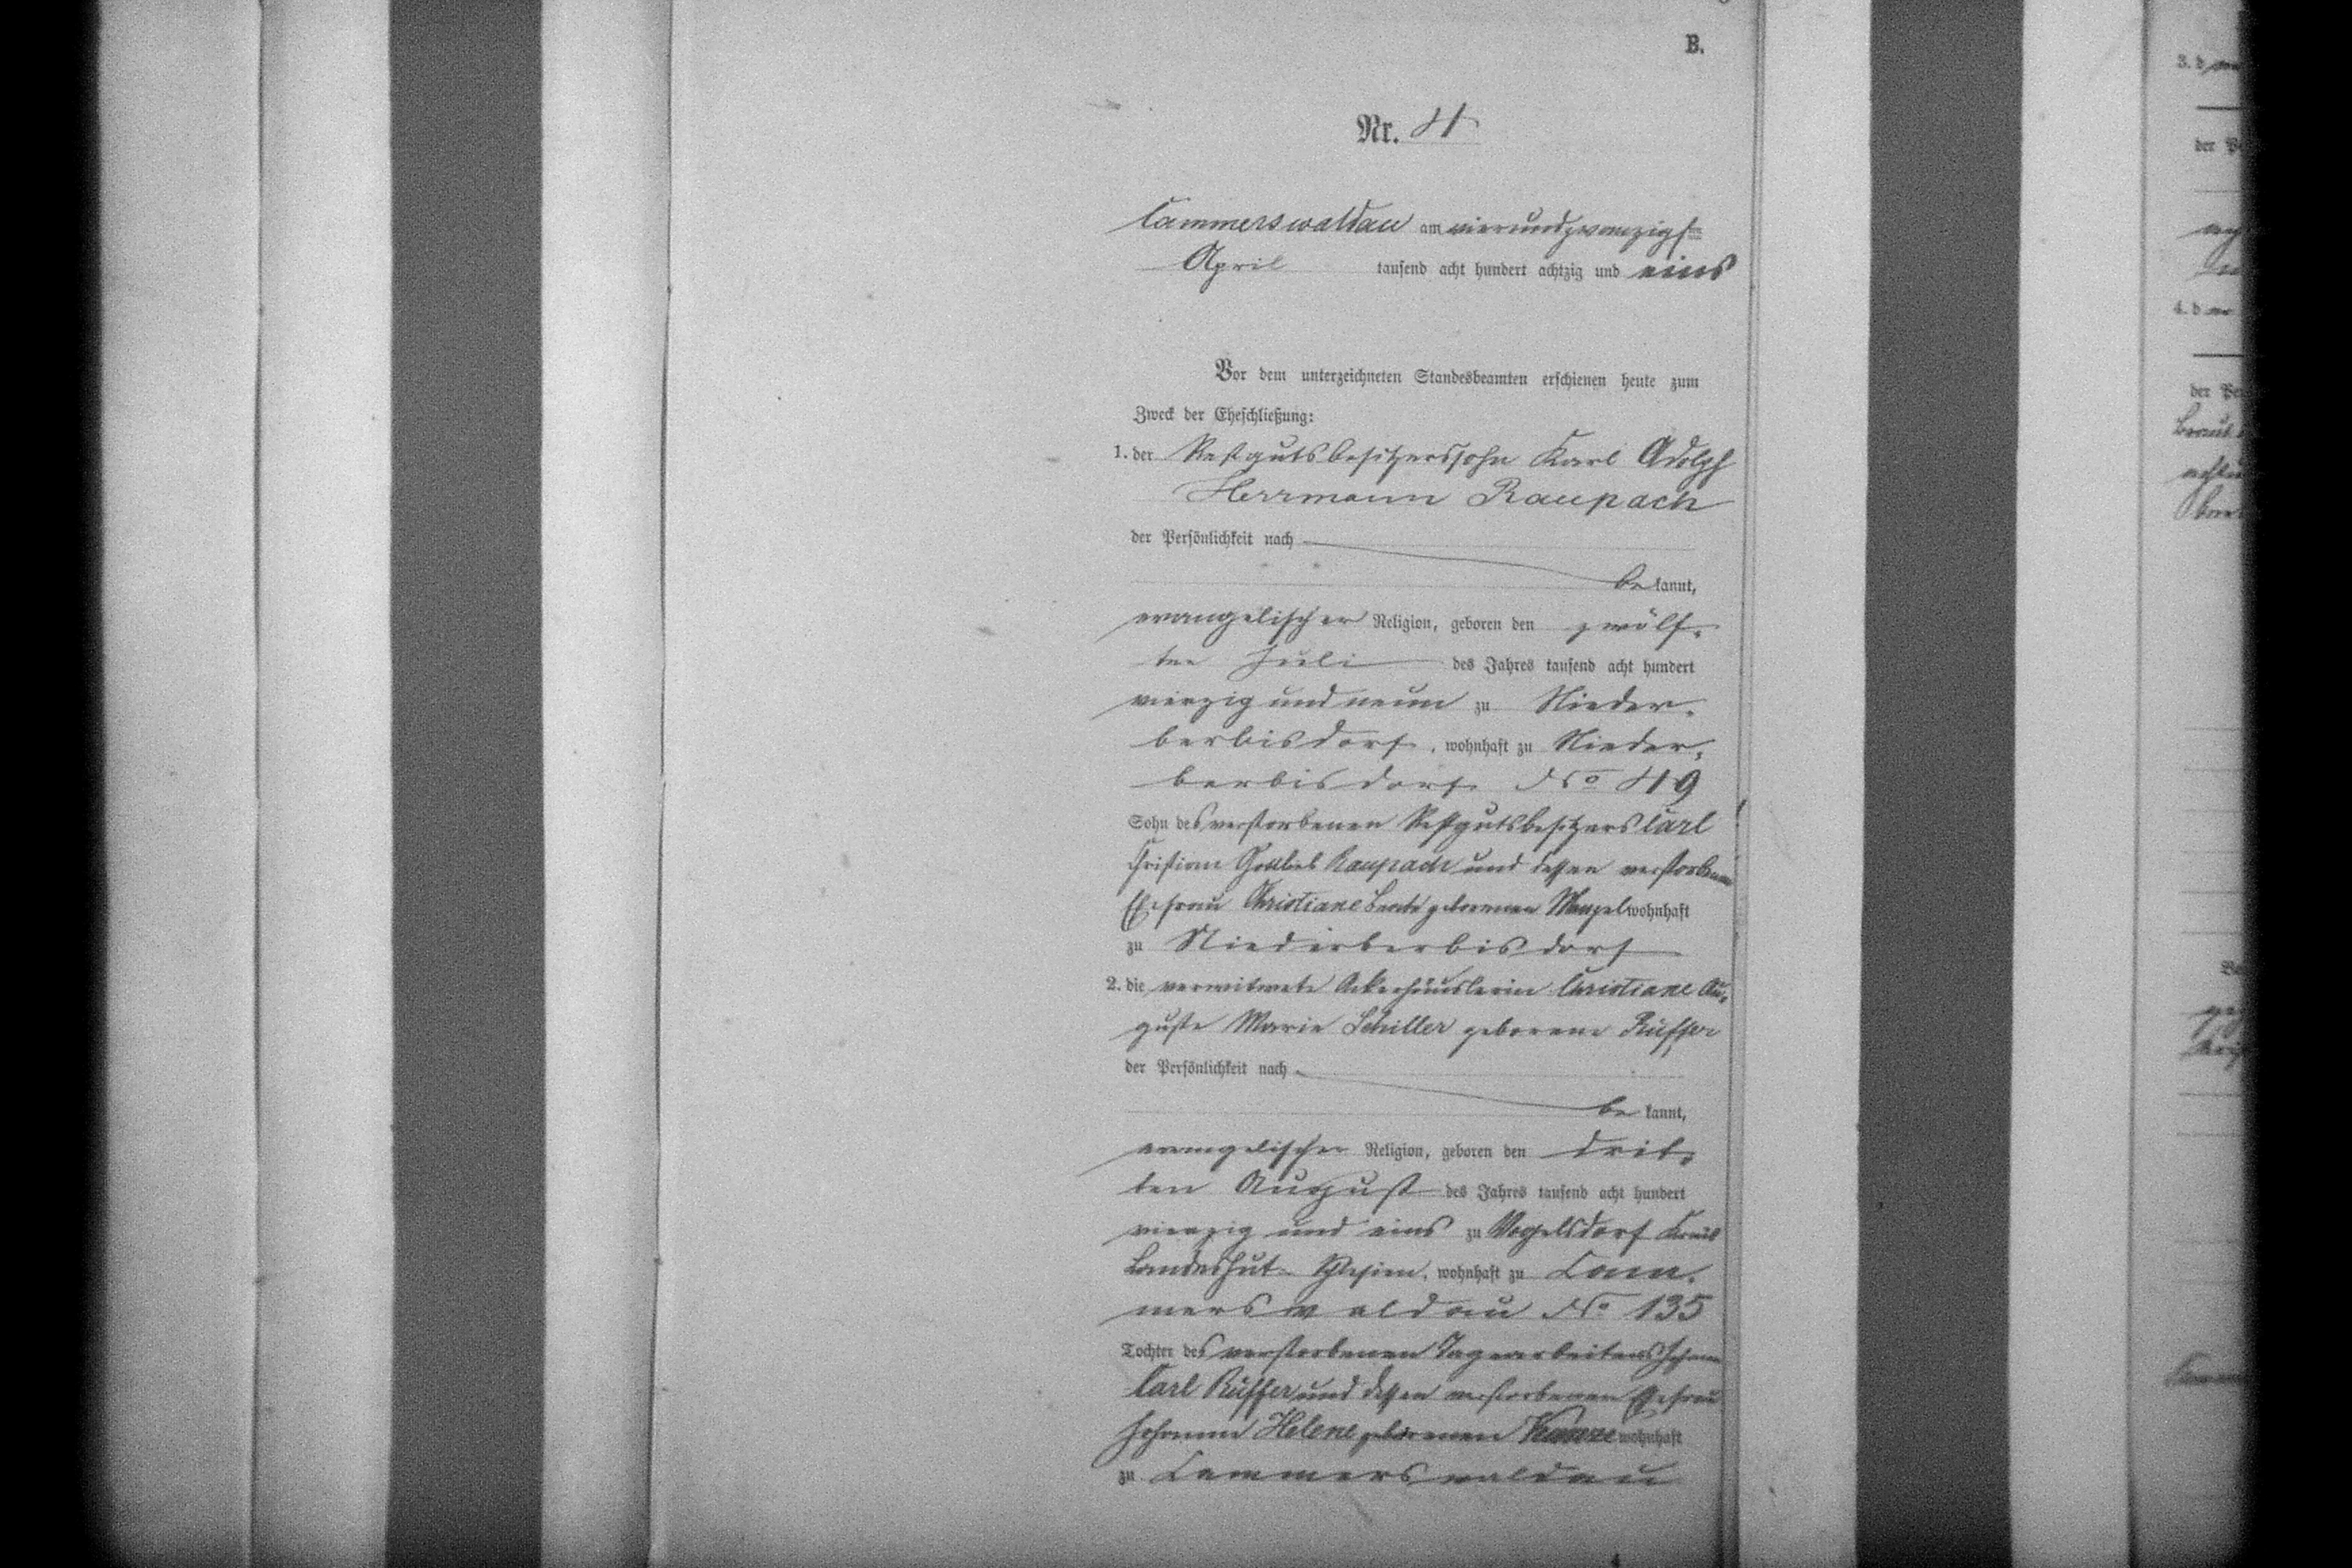 B.
Nr. 4
Cammerswaldau am vierundzwanzigsten
April tausend acht hundert achtzig und eins
Vor dem unterzeichneten Standesbeamten erschienen heute zum
Zweck der Eheschließung:
1. der Restgutsbesitzerssohn Karl Adolph
Herrmann Raupach
der Persönlichkeit nach
be kannt,
evangelischer Religion, geboren den zwölf-
ten Juli des Jahres tausend acht hundert
vierzig und neun zu Nieder-
berbisdorf, wohnhaft zu Nieder-
berbisdorf No 49
Sohn des verstorbenen Restgutsbesitzers Carl
Christian Gottlieb Raupach und dessen verstorbenen
Ehefrau Christiane Beate geborenen Menzel wohnhaft
zu Niederberbisdorf
2. die verwitwete Ackerhäuslerin Christiane Au-
guste Marie Schiller geborene Rüffer
der Persönlichkeit nach
be kannt,
evangelischer Religion, geboren den drit-
ten August des Jahres tausend acht hundert
vierzig und eins zu Vogelsdorf Kreis
Landeshut Schlesien, wohnhaft zu Cam-
merswaldau No 135
Tochter des verstorbenen Tagearbeiters Johann
Carl Rüffer und dessen verstorbenen Ehefrau
Johanne Helene geborenen wohnhaft
zu Cammerswaldau
3. d
der Pe
4. d
der Pe